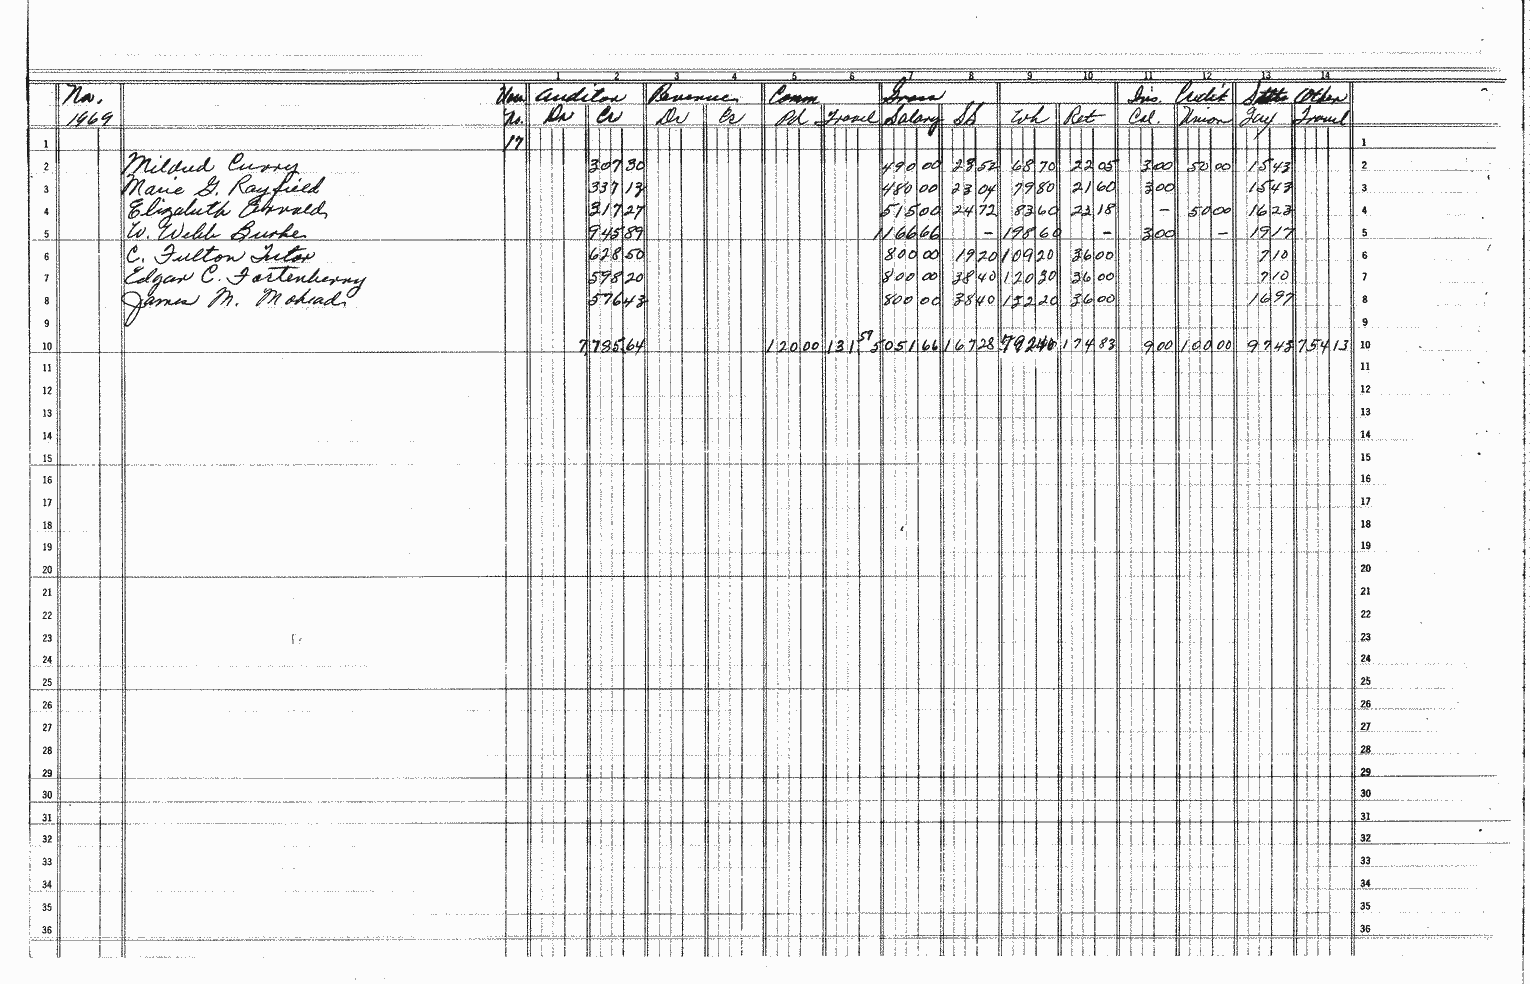 1 2 3 4 5 6 7 8 9 10 11 12 13 14
Nov. Auditor Revenue Comm Gross Ins. Credit State Other
1969 No. Dr Cr Dr Cr Pd Travel Salary SS Wh Ret Cal. Union Tax Travel
1 17 1
2 Mildred Curry 307 30 490 00 23 52 68 70 22 05 3 00 50 00 15 43 2
3 Marie G. Rayfield 337 13 480 00 23 04 79 80 21 60 3 00 15 43 3
4 Elizabeth 317 27 515 00 24 72 83 60 23 18 – 50 00 16 23 4
5 W. Webb Burke 945 89 1166 66 – 198 60 – 3 00 – 19 17 5
6 C. Fulton Tutor 628 50 800 00 19 20 109 20 36 00 7 10 6
7 Edgar C. Fortenberry 598 20 800 00 38 40 120 30 36 00 7 10 7
8 James M. Mohead 576 43 800 00 38 40 132 20 36 00 16 97 8
9 9
10 7,785 64 120 00 131 59 5051 66 167 28 792 40 174 83 9 00 100 00 97 43 754 13 10
11 11
12 12
13 13
14 14
15 15
16 16
17 17
18 18
19 19
20 20
21 21
22 22
23 23
24 24
25 25
26 26
27 27
28 28
29 29
30 30
31 31
32 32
33 33
34 34
35 35
36 36